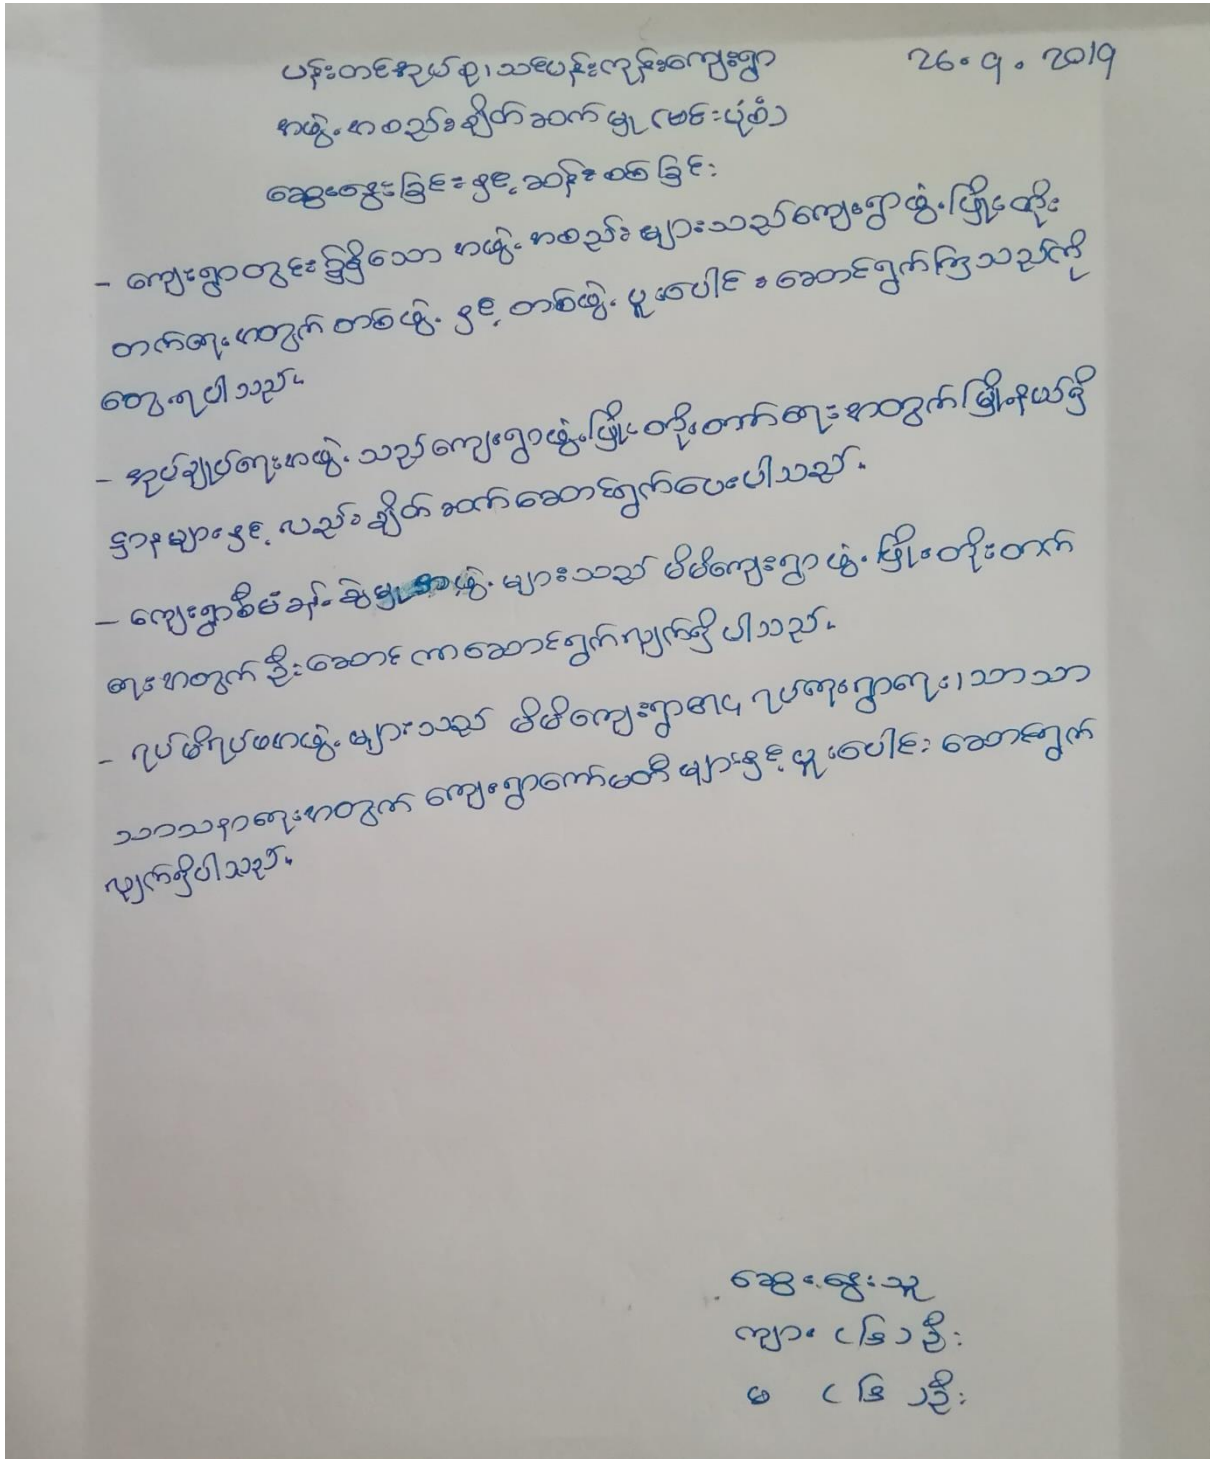 ပန်းတင်အုပ်စု၊ သင်ပန်းကုန်းကျေးရွာ 26.9.2019
အဖွဲ့အစည်းချိတ်ဆက်မှု (မင်းပုံစံ)
ဆွေးနွေးခြင်းနှင့် ဆန်းစစ်ခြင်း
- ကျေးရွာတွင်းရှိသော အဖွဲ့အစည်းများသည်ကျေးရွာဖွံ့ဖြိုးတိုး
တက်ရေးအတွက် တစ်ဖွဲ့နှင့် တစ်ဖွဲ့ ပူးပေါင်းဆောင်ရွက်ကြသည်ကို
တွေ့ရပါသည်။
- အုပ်ချုပ်ရေးအဖွဲ့သည်ကျေးရွာဖွံ့ဖြိုးတိုးတက်ရေးအတွက်မြို့နယ်ရှိ
ဌာနများနှင့်လည်းချိတ်ဆက်ဆောင်ရွက်ပေးပါသည်။
- ကျေးရွာစီမံခန့်ခွဲမှုအဖွဲ့များသည် မိမိကျေးရွာဖွံ့ဖြိုးတိုးတက်
ရေးအတွက်ဦးဆောင်ကာဆောင်ရွက်လျှက်ရှိပါသည်။
- ရပ်မိရပ်ဖအဖွဲ့များသည် မိမိကျေးရွာ၏ ရပ်ရေးရွာရေး၊ သာသာ
သာသနာရေးအတွက် ကျေးရွာကော်မတီများနှင့်ပူးပေါင်းဆောင်ရွက်
လျှက်ရှိပါသည်။
ဆွေးနွေးသူ
ကျား (၆)ဦး
မ (၆)ဦး